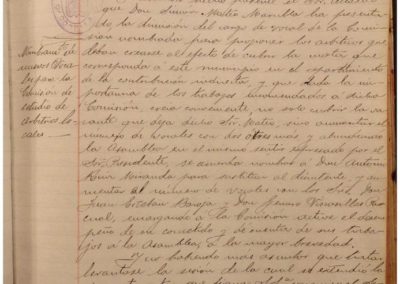 Nombramto de
nuevos Vocales
para la
Comisión de
estudio de
arbitrios locales
que Don Simón Mateo Mancilla ha presentado
la dimisión del cargo de vocal de la Comisión
nombrada para proponer los arbitrios que
deban crearse al efecto de cubrir la cuota que
corresponda á este municipio en el repartimiento
de la contribución indirecta y que dada la importancia
de los trabajos encomendados á dicha
Comisión, creía conveniente no solo cubrir la vacante
que deja dicho Sr. Mateo, sino aumentar el
número de Vocales con dos otros más y abundando
la Asamblea en el mismo sentir expresado por el
Sr. Presidente, se acuerda nombrar á Don Antonio
Ruiz Miranda para sustituir al dimitente y aumentar
el número de Vocales con los Sres. Don
Juan Esteban y Don
encargando á la Comisión active el desempeño
de su cometido y de cuenta de sus trabajos
á la Asamblea, á la mayor brevedad.
Y no habiendo más asuntos que tratar
levantose la sesión de la cual se extendió la